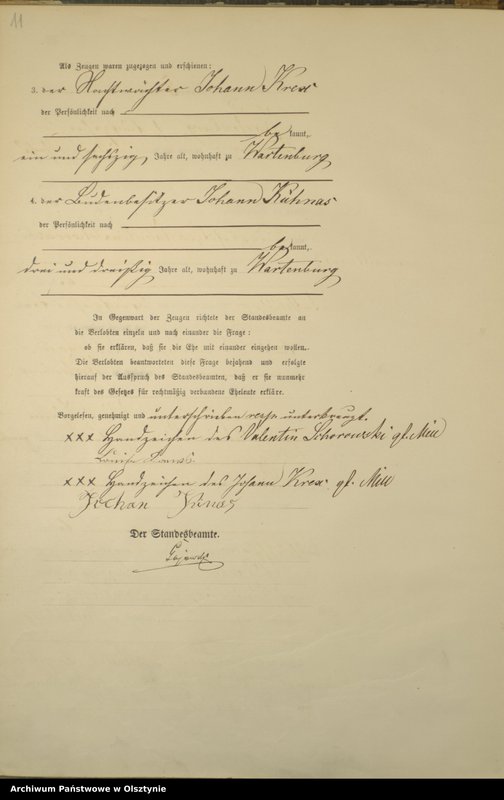 11
Als Zeugen waren zugezogen und erschienen:
3. der Nachtwächter Johann Krex
der Persönlichkeit nach
bekannt,
ein und sechszig Jahre alt, wohnhaft zu Wartenburg
4. der Budenbesitzer Johann Kuhnas
der Persönlichkeit nach
bekannt,
drei und dreißig Jahre alt, wohnhaft zu Wartenburg
In Gegenwart der Zeugen richtete der Standesbeamte an
die Verlobten einzeln und nach einander die Frage:
ob sie erklären, daß sie die Ehe mit einander eingehen wollen.
Die Verlobten beantworteten diese Frage bejahend und erfolgte
hierauf der Ausspruch des Standesbeamten, daß er sie nunmehr
kraft des Gesetzes für rechtmäßig verbundene Eheleute erkläre.
Vorgelesen, genehmigt und unterschrieben resp. unterkreuzt.
××× Handzeichen des Valentin Schorowski
××× Handzeichen des Johann Krex
Johan
Der Standesbeamte.
Archiwum Państwowe w Olsztynie